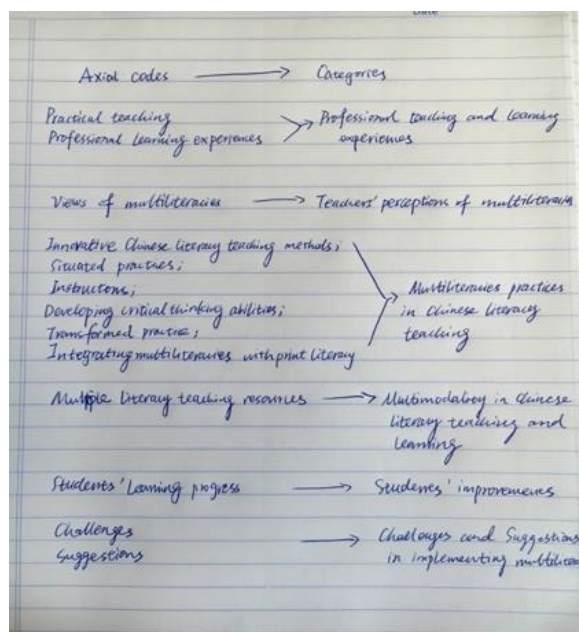 Date
Axial codes → Categories
Practical teaching
Professional learning experiences → Professional teaching and learning
experiences
Views of multiliteracies → Teachers' perceptions of multiliteracies
Innovative Chinese literacy teaching methods;
Situated practices;
Instructions;
Developing critical thinking abilities;
Transformed practice;
Integrating multiliteracies with print literacy
→ Multiliteracies practices
in Chinese literacy
teaching
Multiple literacy teaching resources → Multimodality in Chinese
literacy teaching and
learning
Students' learning progress → Students' improvements
Challenges
Suggestions
→ Challenges and Suggestions
in implementing